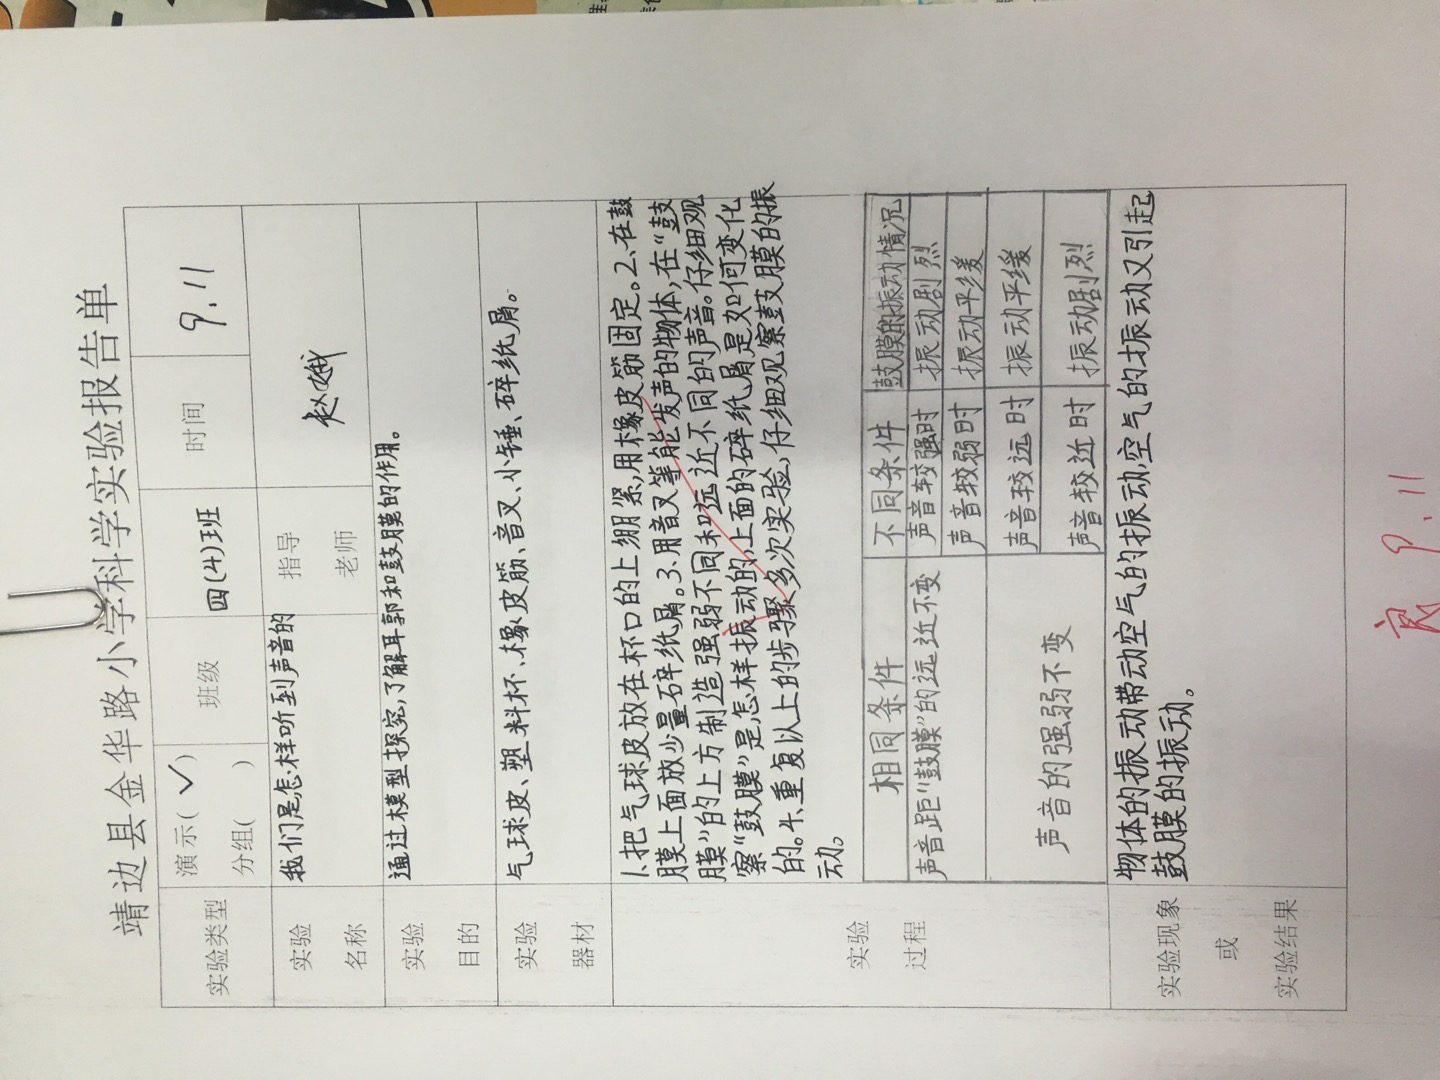 靖边县金华路小学科学实验报告单
实验类型 演示(✓) 分组( ) 班级 四(4)班 时间 9.11
实验名称 我们是怎样听到声音的 指导老师 赵娥
实验目的 通过模型探究,了解耳郭和鼓膜的作用。
实验器材 气球皮、塑料杯、橡皮筋、音叉、小锤、碎纸屑。
实验过程
1、把气球皮放在杯口的上绷紧,用橡皮筋固定。2、在鼓
膜上面放少量碎纸屑。3、用音叉等能发声的物体,在“鼓
膜”的上方制造强弱不同和远近不同的声音。仔细观
察“鼓膜”是怎样振动的,上面的碎纸屑是如何变化
的。4、重复以上的步骤多次实验,仔细观察鼓膜的振
动。
相同条件 不同条件 鼓膜的振动情况
声音距“鼓膜”的远近不变 声音较强时 振动剧烈
声音较弱时 振动平缓
声音的强弱不变 声音较远时 振动平缓
声音较近时 振动剧烈
实验现象或实验结果
物体的振动带动空气的振动,空气的振动又引起
鼓膜的振动。
良 9.11